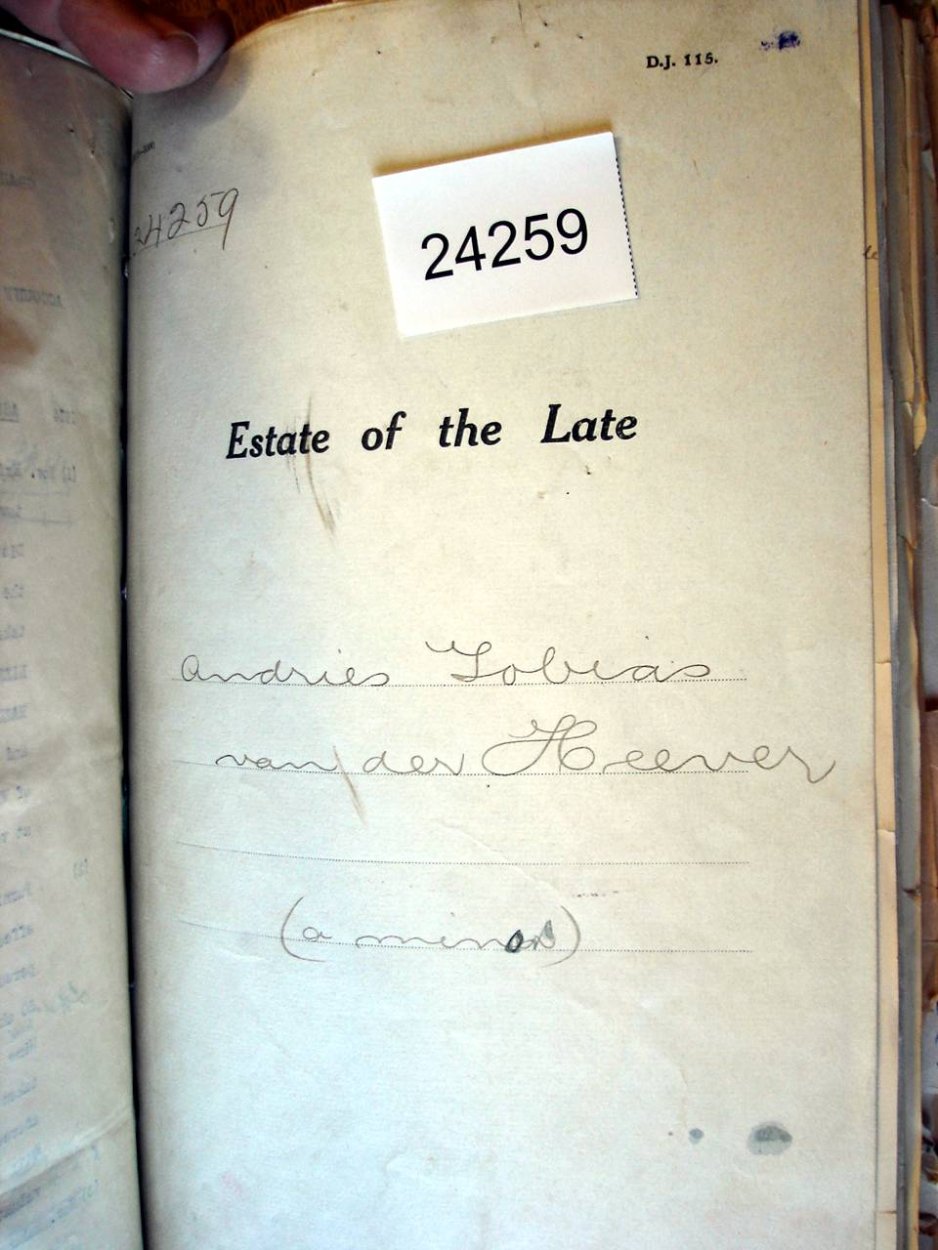 D.J. 115.
24259
24259
Estate of the Late
Andries Tobias
van der Heever
(a minor)